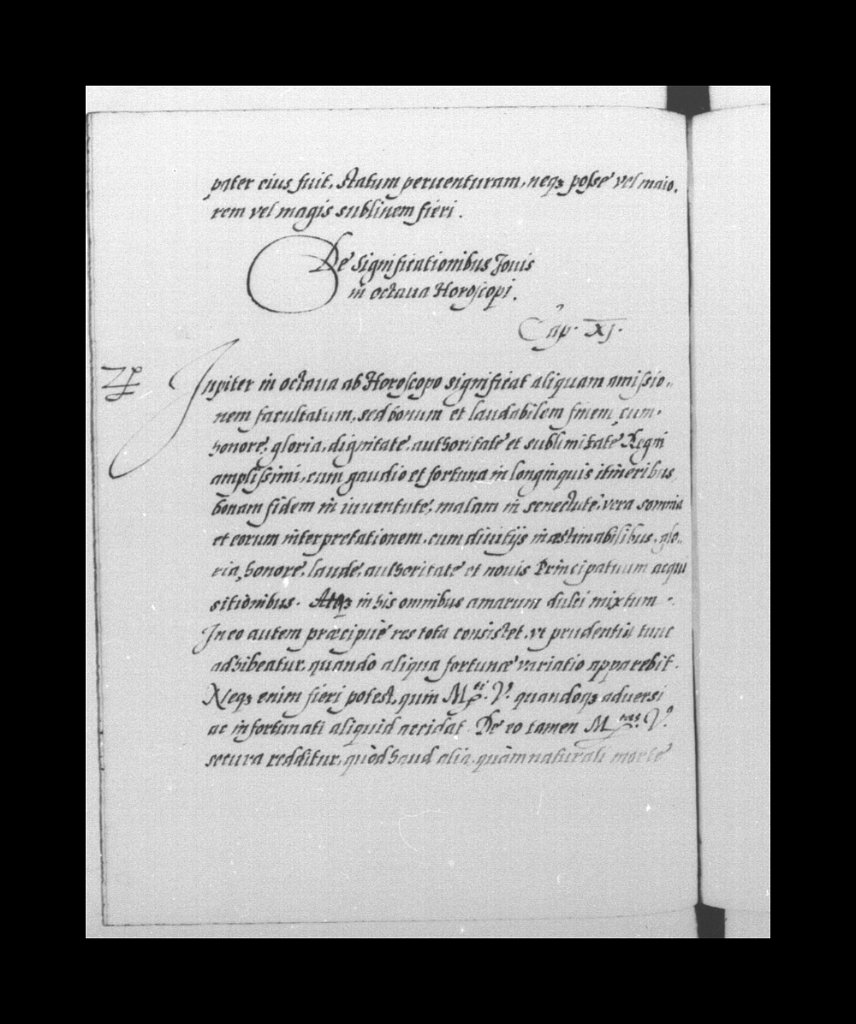 pater eius fuit, statum peruenturam, neqȝ posse vel maio,
rem vel magis sublimem fieri.
De significationibus Jouis
in octaua Horoscopi.
Cap. XI.
Jupiter in octaua ab Horoscopo significat aliquam amissio,,
nem facultatum, sed bonum et laudabilem finem, cum
honore, gloria, dignitate, authoritate et sublimitate Regni
amplissimi, cum gaudio et fortuna in longinquis itineribus,
bonam fidem in iuuentute, malam in senectute, vera somnia
et eorum interpretationem, cum diuitijs inæstimabilibus, glo,,
ria, honore, laude, authoritate et nouis Principatuum acqui
sitionibus. Atqȝ in his omnibus amarum dulci mixtum.
In eo autem præcipuè res tota consistet, vt prudentia tunc
adhibeatur, quando aliqua fortunæ variatio apparebit.
Neqȝ enim fieri potest, quin M. V. quandoqȝ aduersi
ac infortunati aliquid accidat. De eo tamen M. V.
secura redditur, quòd haud alia, quàm naturali morte